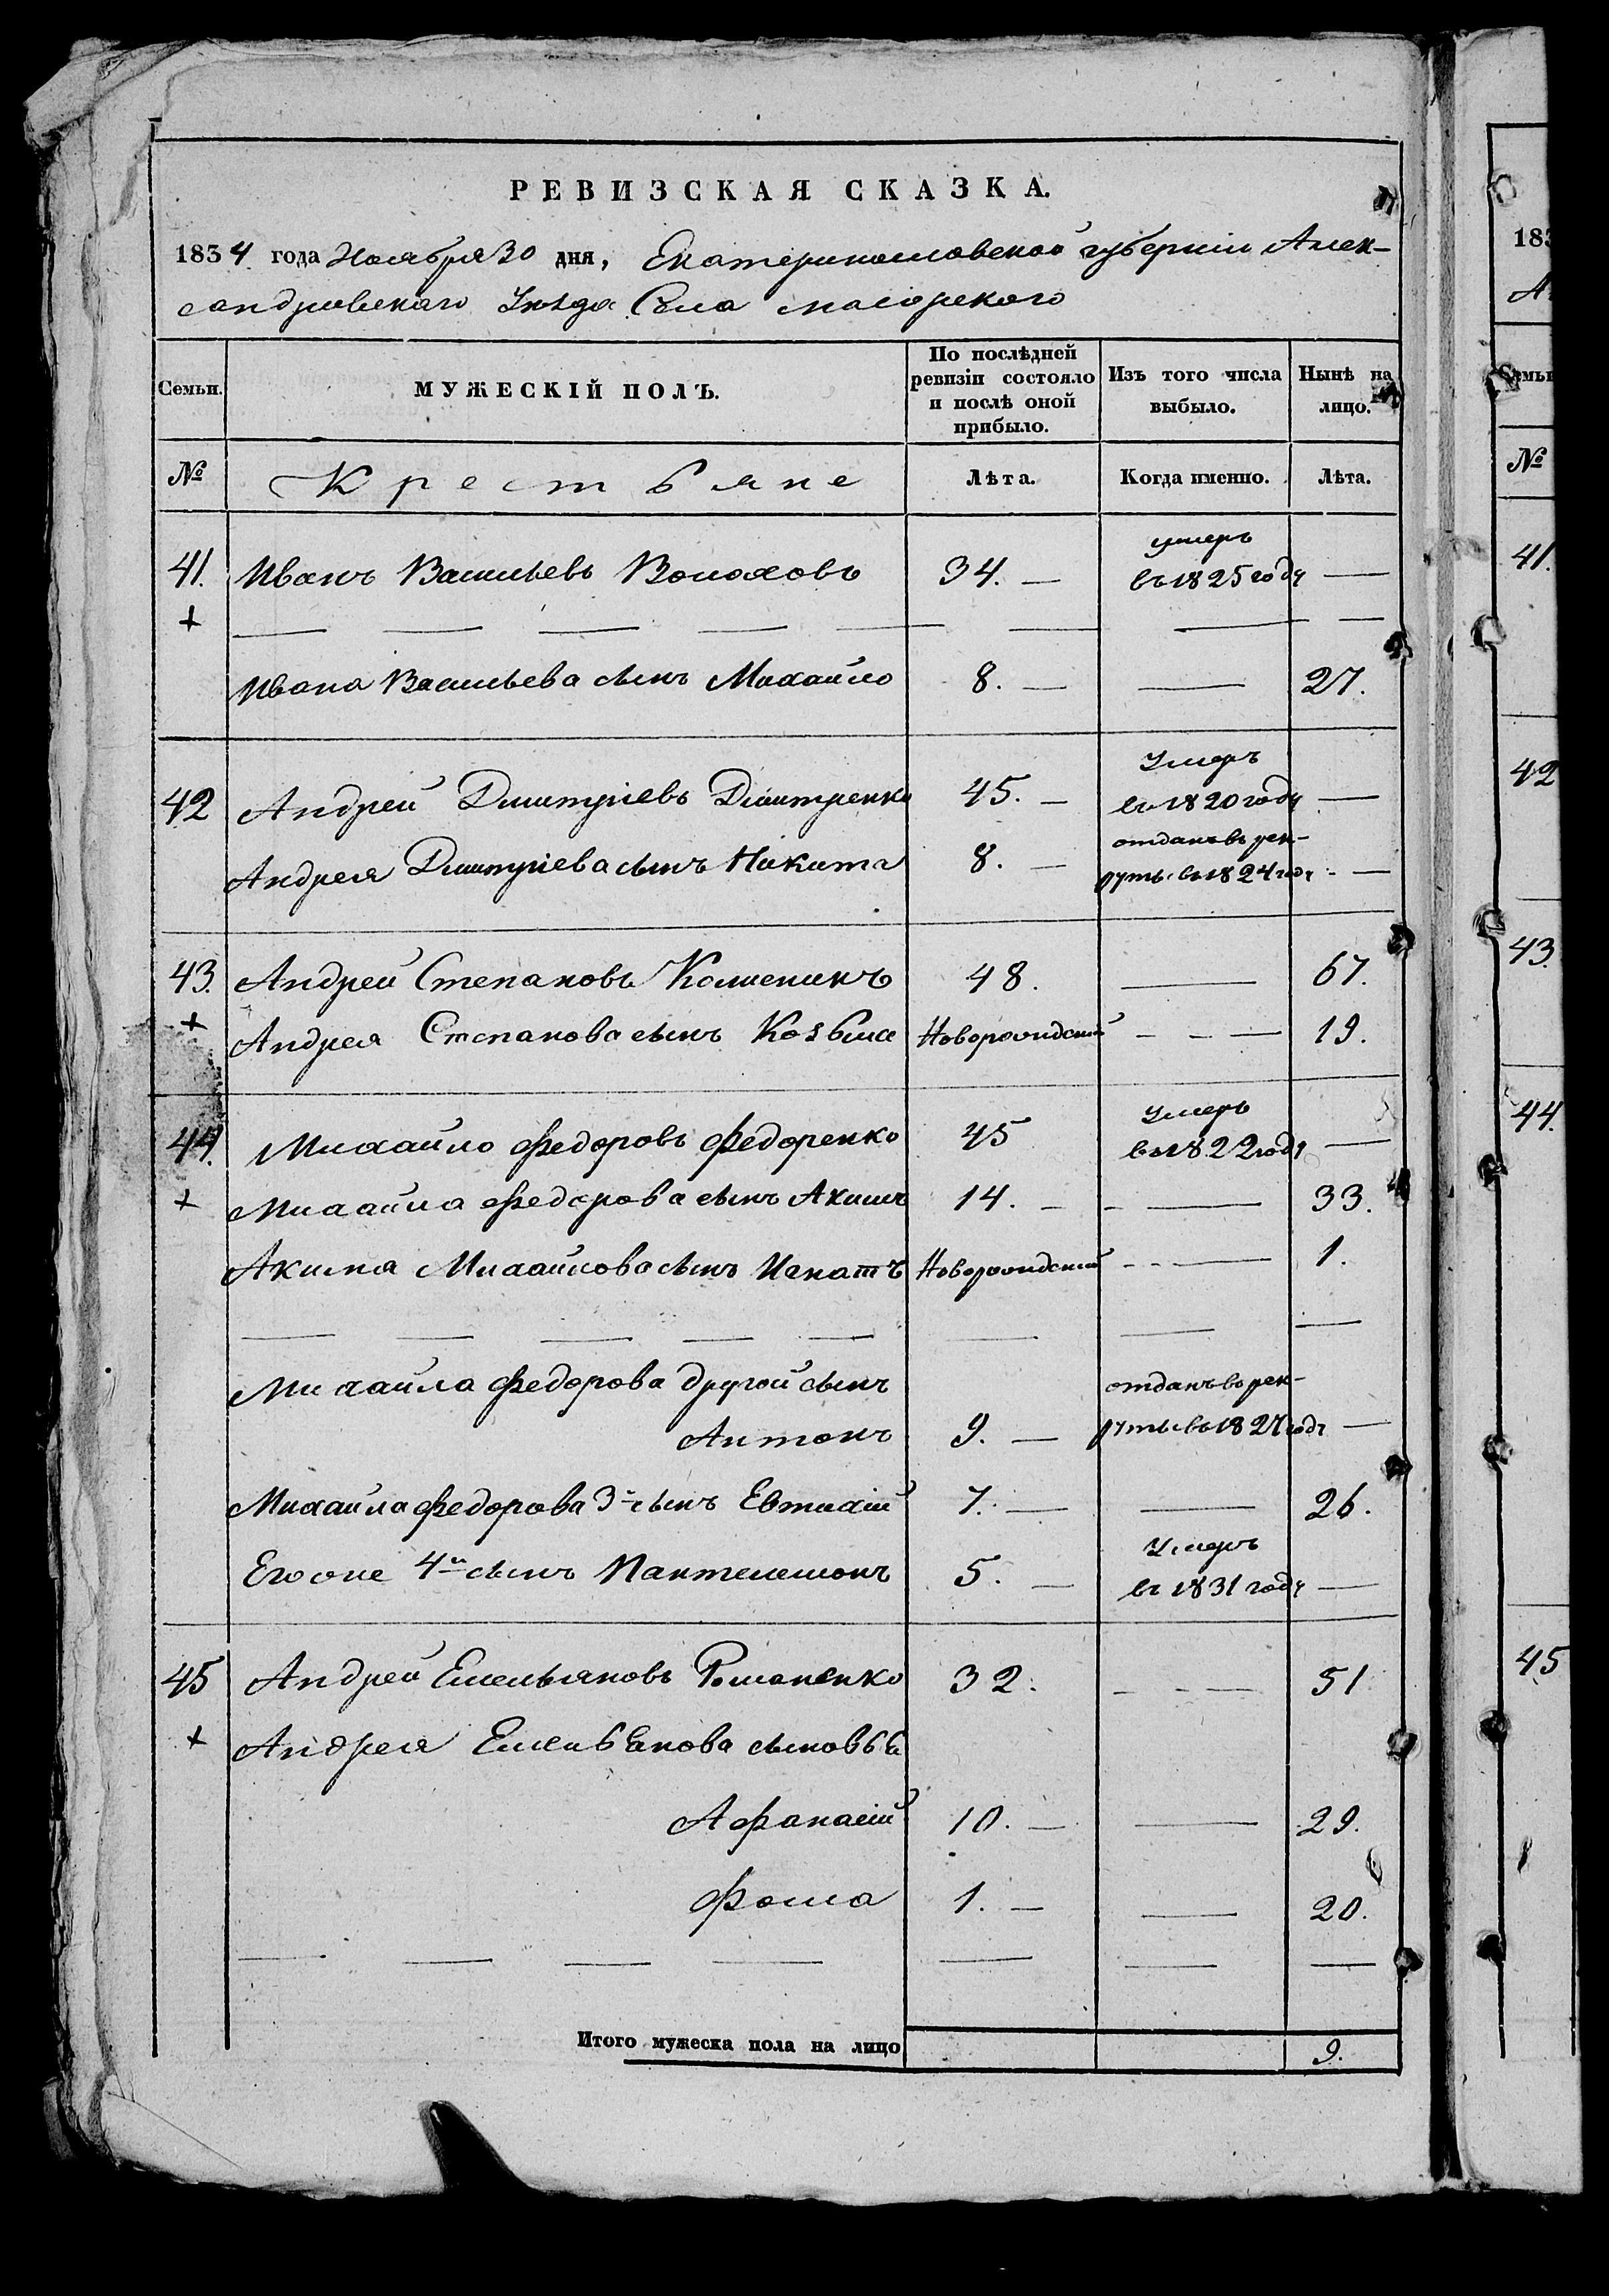 РЕВИЗСКАЯ СКАЗКА.
1834 года Ноября 30 дня, Екатеринославской губернiи Алек-
сандровскаго Уѣзда Села
Семьи. МУЖЕСКІЙ ПОЛЪ. По послѣдней ревизіи состояло и послѣ оной прибыло. Изъ того числа выбыло. Нынѣ на лицо.
№ Крестьяне Лѣта. Когда именно. Лѣта.
41. Иванъ Васильевъ Волоховъ 34. — умеръ въ 1825 году —
+
Ивана Васильева сынъ Михайло 8. — — 27.
42 Андрей Дмитріевъ Дмитренко 45. — Умеръ въ 1820 году —
Андрея Дмитріева сынъ Никита 8. — отданъ въ рек-
руты въ 1824 годѵ —
43. Андрей Степановъ 48. — 67.
+ Андрея Степанова сынъ Козьма Новорожденный — 19.
44. Михайло Федоровъ Федоренко 45 Умеръ въ 1822 годѵ —
+ Михайла Федорова сынъ Акимъ 14. — — 33.
Акима Михайлова сынъ Игнатъ Новорожденный — 1.
Михайла Федорова другой сынъ отданъ въ рек-
Антонъ 9. — руты въ 1827 годѵ —
Михайла Федорова 3й сынъ Евтихій 7. — — 26.
Его же 4й сынъ Пантелемонъ 5. — Умеръ въ 1831 годѵ —
45 Андрей Емельяновъ Романенко 32. — 51
+ Андрея Емельянова сыновья
Афанасій 10. — — 29.
Фома 1. — — 20.
Итого мужеска пола на лицо 9.
183
Семьи
№
41.
42
43.
44.
45